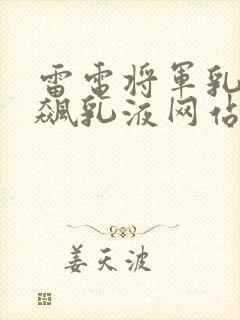 雷电将军乳
飙乳液网佔
姜天波